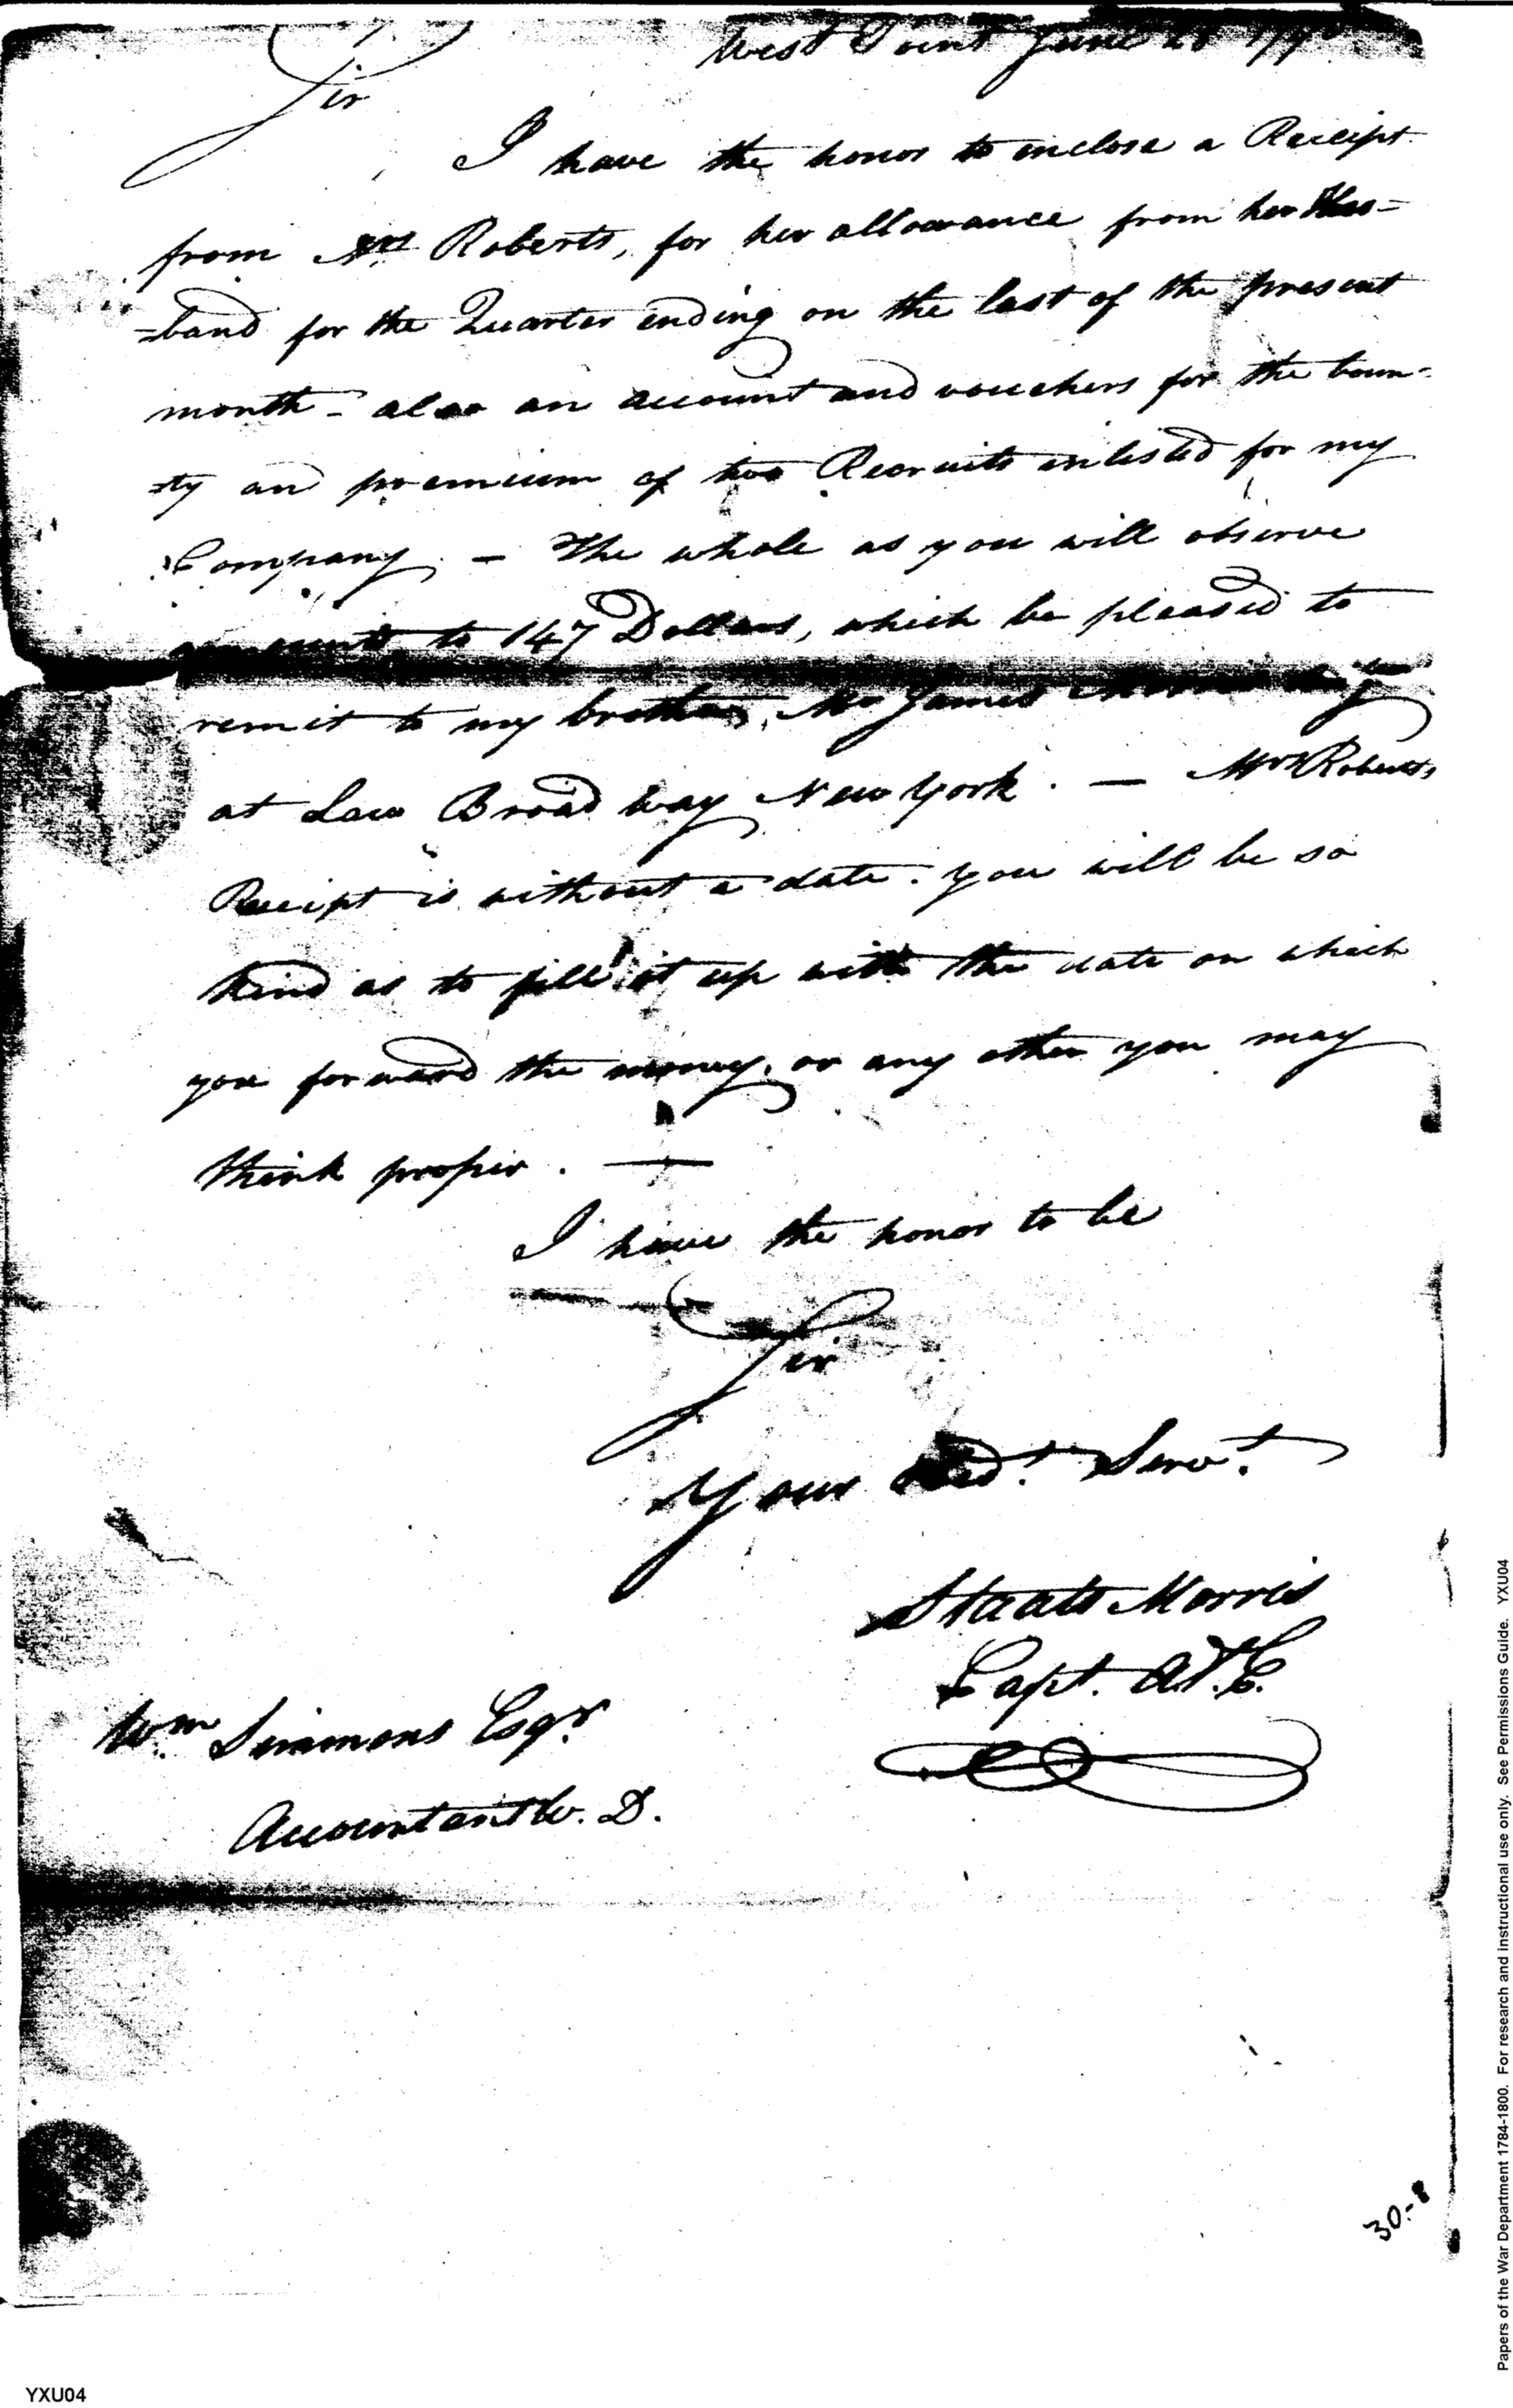 West Point June 28 179
Sir
I have the honor to inclose a Receipt
from Mrs Roberts, for her allowance from her Hus-
-band for the Quarter ending on the last of the present
month - also an account and vouchers for the boun-
-ty and premium of two Recruits enlisted for my
Company. - The whole as you will observe
amounts to 147 Dollars, which be pleased to
remit to my brother, Mr James Morris
at Law Broad Way New York. - Mrs Roberts
Receipt is without a date. you will be so
kind as to fill it up with the date on which
you forward the money, or any other you may
think proper. -
I have the honor to be
Sir
Your Obedt. Servt.
Staats Morris
Capt. A.T.C.
Wm Simmons Esqr.
Accountant W. D.
30.-8
YXU04
Papers of the War Department 1784-1800. For research and instructional use only. See Permissions Guide. YXU04